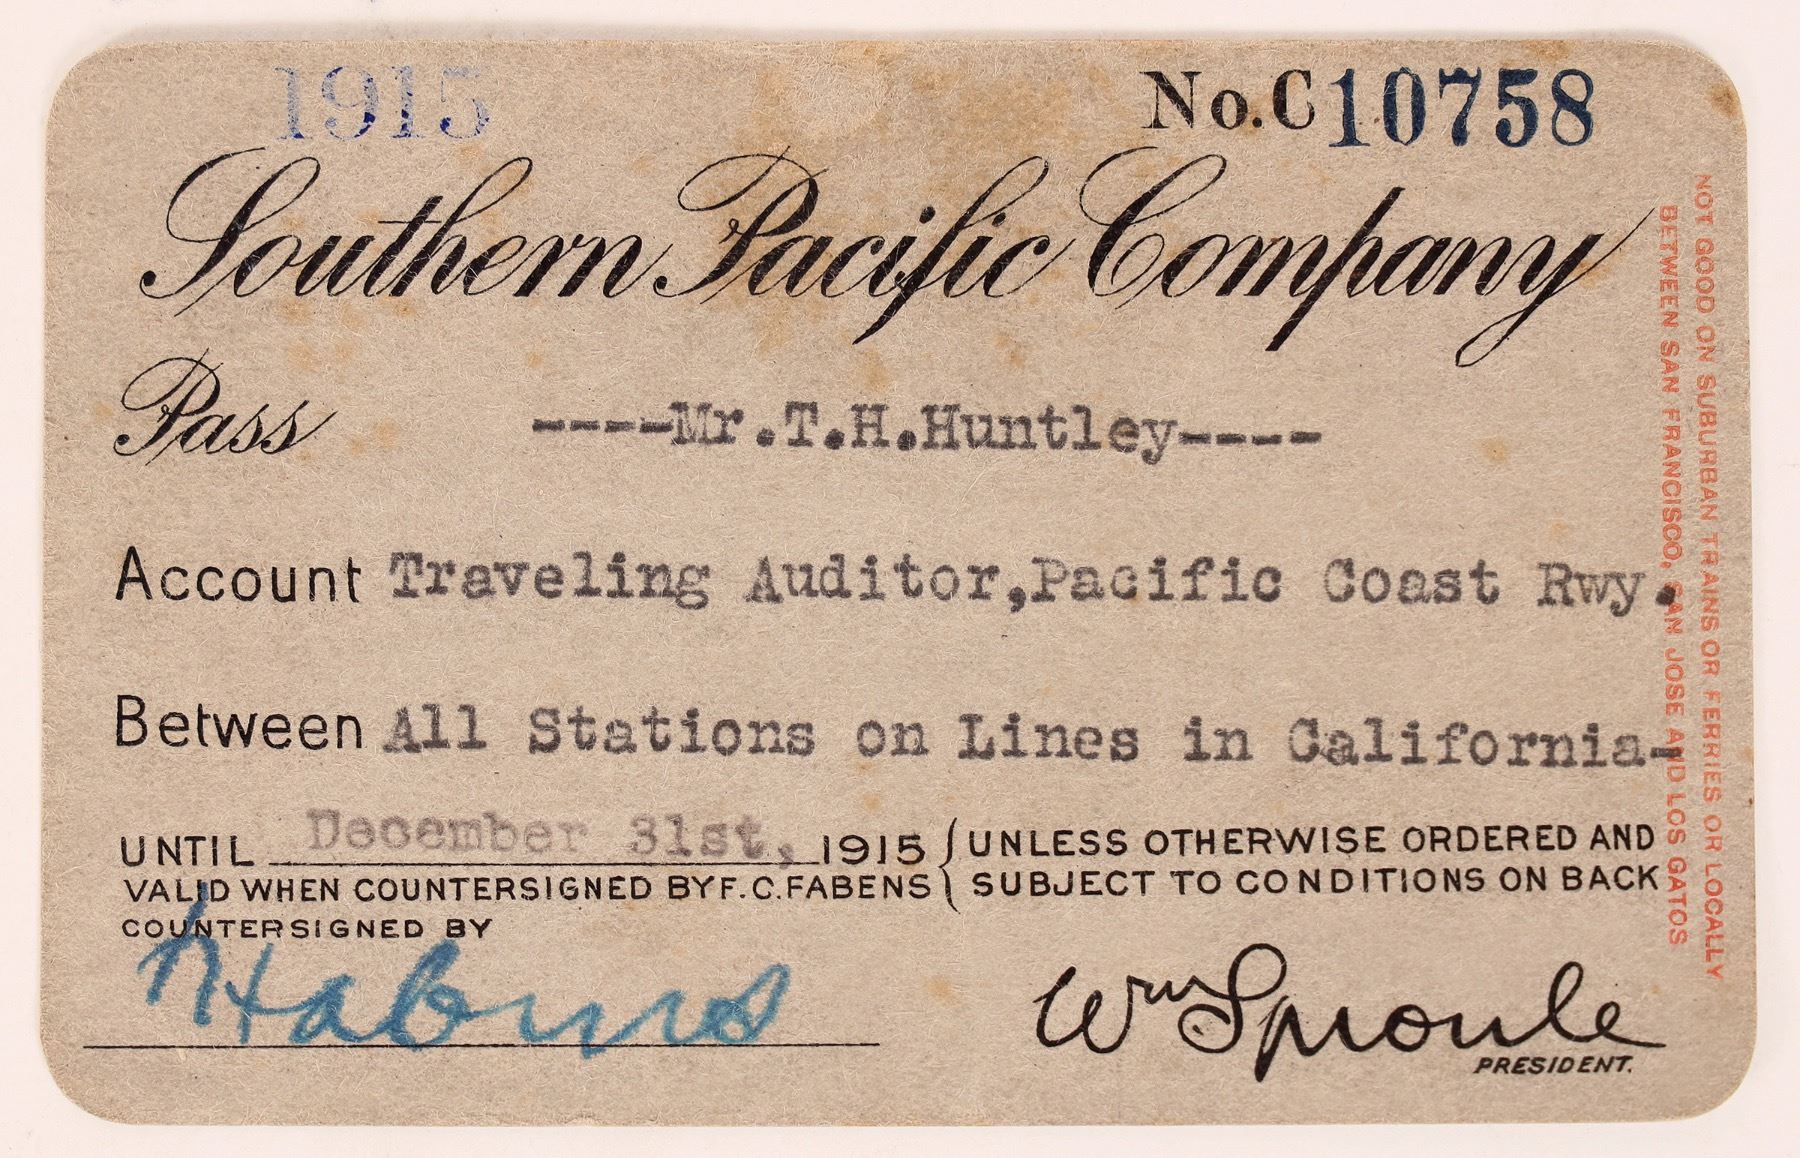 1915
No. C 10758
Southern Pacific Company
Pass ----Mr.T.H.Huntley----
Account Traveling Auditor,Pacific Coast Rwy.
Between All Stations on Lines in California-
UNTIL December 31st, 1915 { UNLESS OTHERWISE ORDERED AND
VALID WHEN COUNTERSIGNED BY F. C. FABENS { SUBJECT TO CONDITIONS ON BACK
COUNTERSIGNED BY
Wm Sproule
PRESIDENT.
NOT GOOD ON SUBURBAN TRAINS OR FERRIES OR LOCALLY
BETWEEN SAN FRANCISCO, SAN JOSE AND LOS GATOS